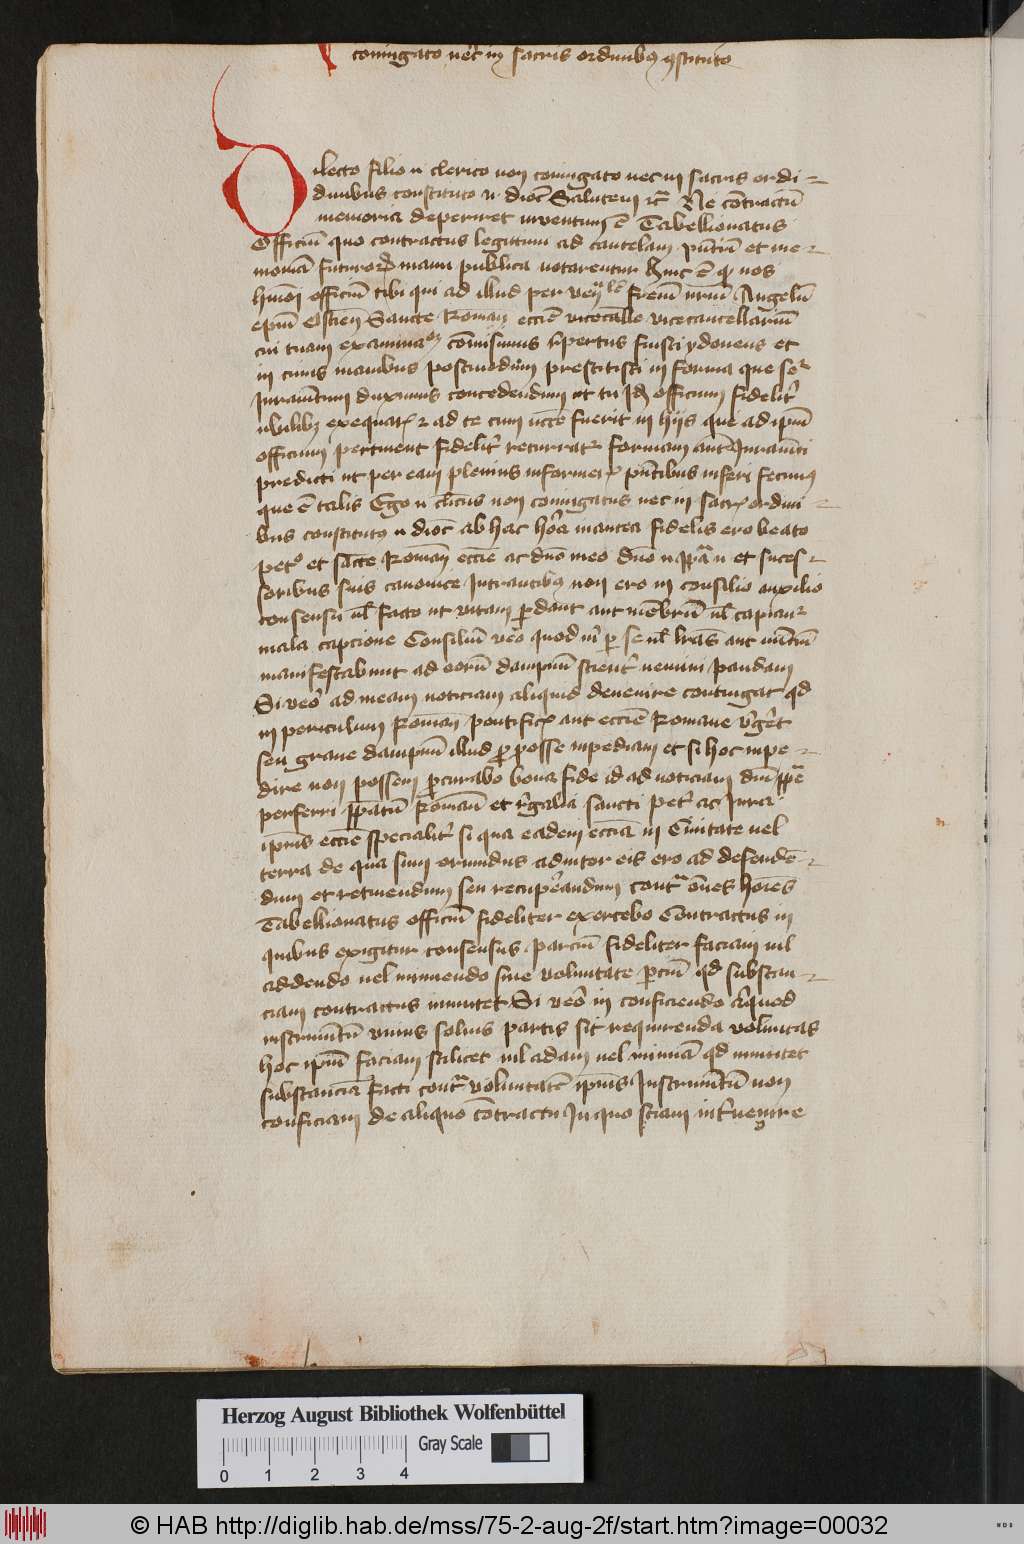 coniugato nec in sacris ordinibus constituto
Dilecto filio n clerico non coniugato nec in sacris ordi-
dinibus constituto n dioc Salutem etc Ne contractuum
memoria deperiret inventum est Tabellionatus
Officium quo contractus legittimi ad cautelam presentium et me-
moriam futurorum manu publica notarentur hinc est quod nos
huiusmodi officium tibi qui ad illud per ven fratrem nostrum Angelum
episcopum Ostien Sancte Roman ecclesie vicecancellarium
cui tuam examinacionem commisimus repertus fuisti ydoneus et
in cuius manibus postmodum prestitisti in forma que se
Iuramentum duximus concedendum ut tu idem officium fideliter
exequaris et ad te cum necesse fuerit in hiis que ad ipsum
officium pertinent fideliter recurratur formam autem Iuramenti
predicti ut per eam plenius informeris presentibus inseri fecimus
que est talis Ego n clericus non coniugatus nec in sacris ordini
bus constitutus n dioc ab hac hora inantea fidelis ero beato
Petro et sancte Romane ecclesie ac domino meo domino n pape n et succes-
soribus suis canonice Intrantibus non ero in consilio auxilio
consensu vel facto ut vitam perdant aut membrum vel capiantur
mala capcione Consilium vero quod michi per se vel litteras aut nuncium
manifestabunt ad eorum dampnum scienter nemini pandam
Si vero ad meam noticiam aliquid devenire contingat quod
in periculum Romani pontificis aut ecclesie Romane vergeret
seu grave dampnum illud pro posse inpediam et si hoc inpe-
dire non possem procurabo bona fide id ad noticiam domini pape
perferri papatum Romanum et regalia sancti Petri ac Iura
ipsius ecclesie specialiter si qua eadem ecclesia in Civitate vel
terra de qua sum oriundus adiutor eis ero ad defenden-
dum et retinendum seu recuperandum contra omnes homines
Tabellionatus officium fideliter exercebo Contractus in
quibus exigitur consensus parcium fideliter faciam nil
addendo vel minuendo sine voluntate parcium quod substan-
ciam contractus inmutet Si vero in conficiendo aliquod
instrumentum unius solius partis sit requirenda voluntas
hoc ipsum faciam scilicet nil adam vel minuam quod inmutet
substanciam facti contra voluntatem ipsius Instrumentum non
conficiam de aliquo contractu In quo sciam intervenire
Herzog August Bibliothek Wolfenbüttel
Gray Scale
0 1 2 3 4
© HAB http://diglib.hab.de/mss/75-2-aug-2f/start.htm?image=00032